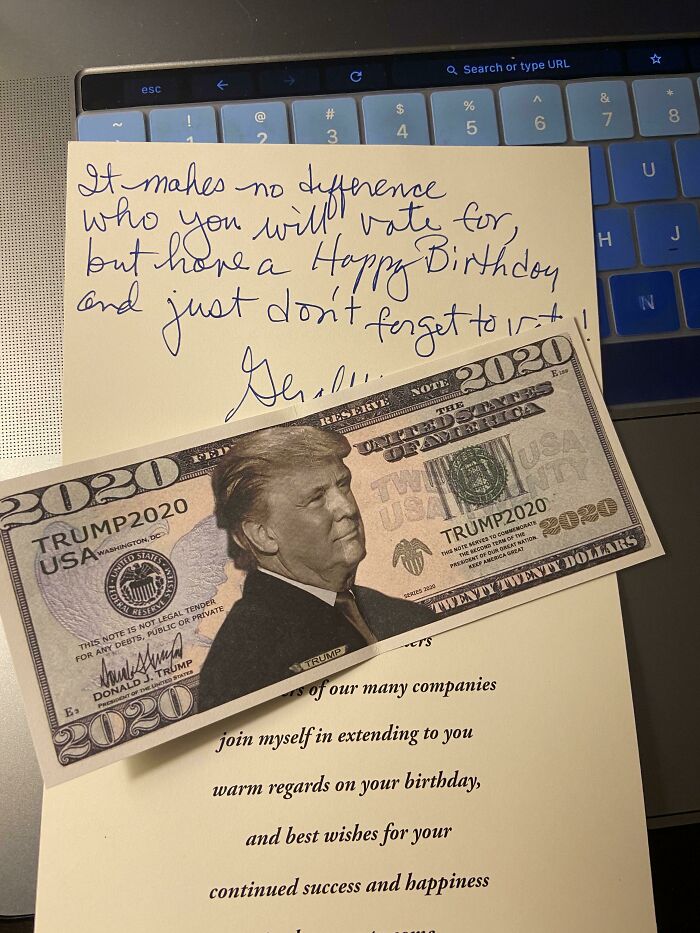 esc
Search or type URL
~ ! @ # $ % ^ & *
2 3 4 5 6 7 8
U
H J
N
It makes no difference
who you will vote for,
but have a Happy Birthday
and just don't forget to !
2020 RESERVE NOTE 2020
THE
UNITED STATES
OF AMERICA
TRUMP2020
USA WASHINGTON, DC
UNITED STATES
FEDERAL RESERVE
THIS NOTE IS NOT LEGAL TENDER
FOR ANY DEBTS, PUBLIC OR PRIVATE
DONALD J. TRUMP
PRESIDENT OF THE UNITED STATES
2020
TRUMP
USA
TRUMP2020
2020
THIS NOTE SERVES TO COMMEMORATE
THE SECOND TERM OF THE
PRESIDENT OF OUR GREAT NATION.
KEEP AMERICA GREAT
SERIES 2020
TWENTY TWENTY DOLLARS
of our many companies
join myself in extending to you
warm regards on your birthday,
and best wishes for your
continued success and happiness